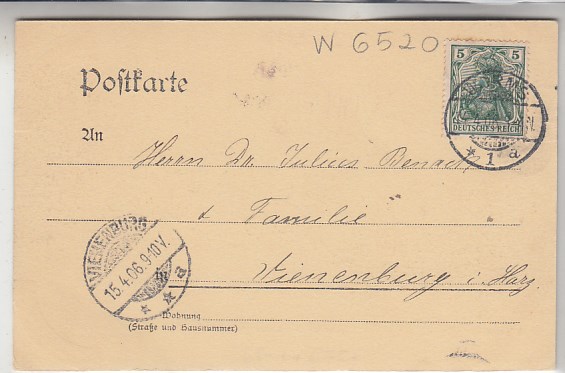 W 6520
Postkarte
5 5
DEUTSCHES REICH
* 1 a
An
Herrn Dr. Julius
& Familie
VIENENBURG
15.4.06.9-10V.
* * a
in
Vienenburg i. Harz.
Wohnung
(Straße und Hausnummer)